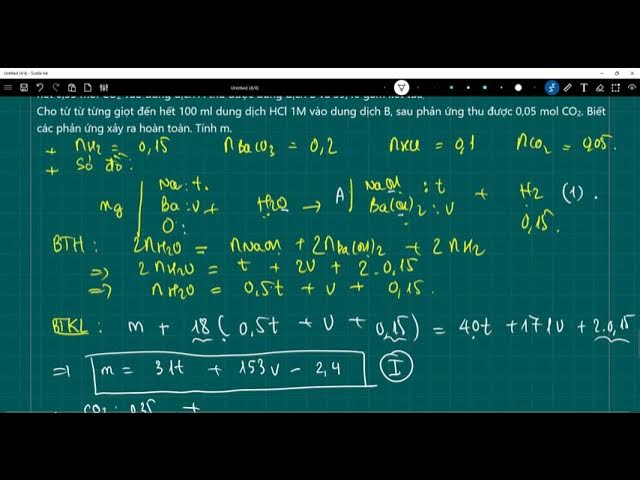 Untitled (4/4)
Cho từ từ từng giọt đến hết 100 ml dung dịch HCl 1M vào dung dịch B, sau phản ứng thu được 0,05 mol CO₂. Biết
các phản ứng xảy ra hoàn toàn. Tính m.
+ nH₂ = 0,15 nBaCO₃ = 0,2 nHCl = 0,1 nCO₂ = 0,05.
+ Sơ đồ:
Na: t. NaOH : t
mg Ba: v + H₂O → A Ba(OH)₂ : v + H₂ (1).
O: 0,15.
BTH: 2nH₂O = nNaOH + 2nBa(OH)₂ + 2nH₂
=> 2nH₂O = t + 2v + 2.0,15
=> nH₂O = 0,5t + v + 0,15.
BTKL: m + 18(0,5t + v + 0,15) = 40t + 171v + 2.0,15
=> m = 31t + 153v - 2,4 I
CO₂: 0,35 +